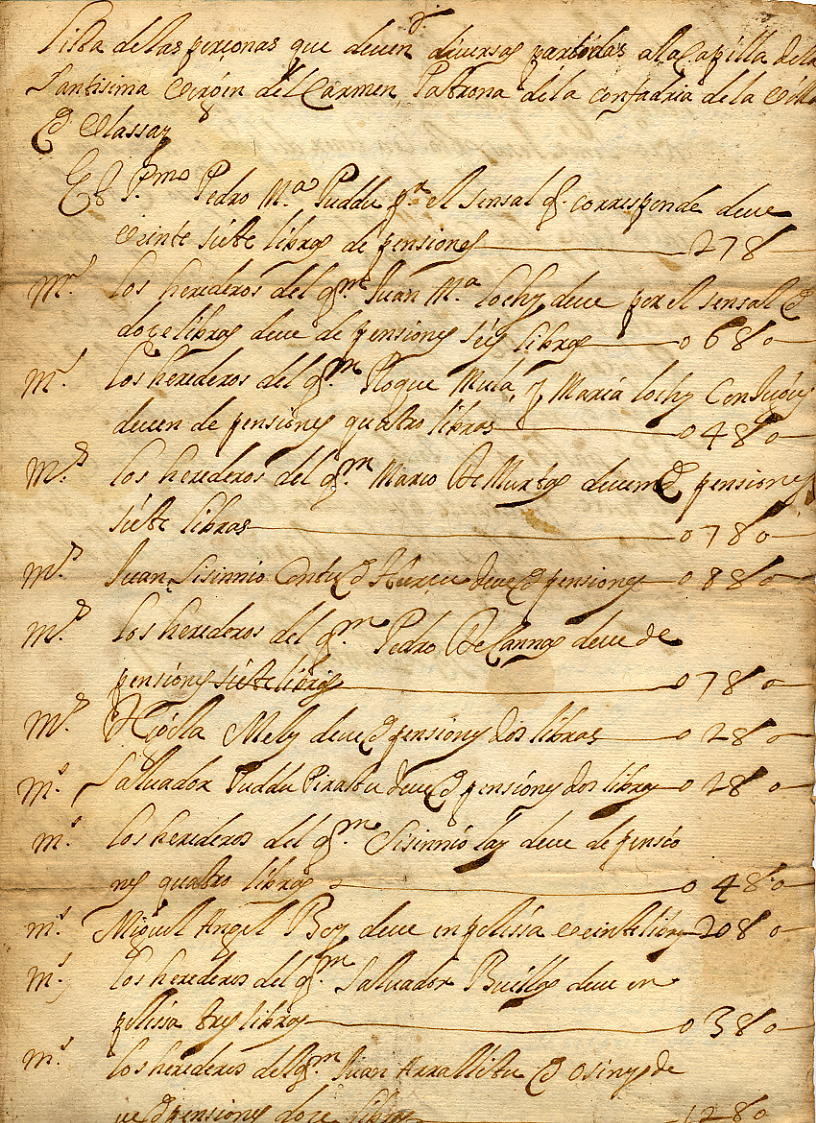 Lista de las personas que deven diversas partidas a la Capilla de la
Santisima Virgen del Carmen Patrona de la confadria de la Villa
de Ulassay
El P.mo Pedro M.a Puddu p.r el sensal q. corresponde deve
veinte siete libras de pensiones 27 8
m.s los herederos del q.m Juan M.a Lochy deve por el sensal de
doze libras deve de pensiones seis libras 0 6 8 0
m.s los herederos del q.m Roque Mula, y Maria Lochy Conjuges
deven de pensiones quatro libras 0 4 8 0
m.s los herederos del q.m Mario De Murtas deven de pensiones
siete libras 0 7 8 0
m.s Juan Sisinnio Contu de deve de pensiones 0 8 8 0
m.s los herederos del q.m Pedro De Cannas deve de
pensiones siete libras 0 7 8 0
m.s Mely deve de pensiones dos libras 0 2 8 0
m.s Salvador Puddu Pirastu deve de pensiones dos libras 0 2 8 0
m.s los herederos del q.m Sisinnio Lay deve de pensio
nes quatro libras 0 4 8 0
m.s Miguel Angel Boy deve en polissa veinte libras 20 8 0
m.s los herederos del q.m Salvador deve en
polissa tres libras 0 3 8 0
m.s los herederos del q.m Juan Arrallitu de Osiny de
ve de pensiones doze libras 12 8 0